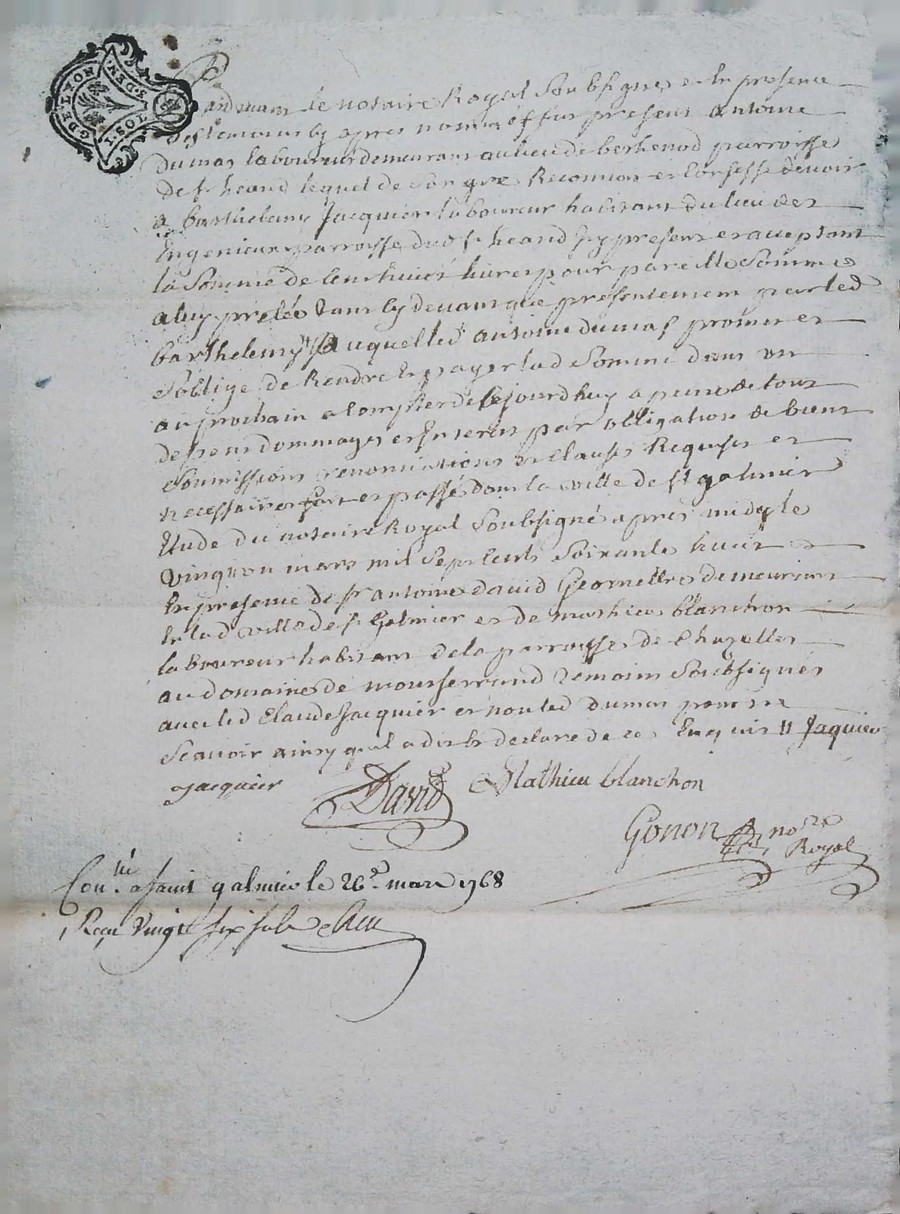 G DE LYON
1. SOL
2. DEN
Pardevant le notaire Royal Soubsigné et En presence
des temoins cy apres nommés fut present antoine
dumas laboureur demeurant au lieu de berthenod parroisse
de st heand lequel de son gre Reconnoit et Confesse devoir
a barthelemy Jacquier laboureur habitant du lieu des
Engenieux parroisse dud st heand Icy present et acceptant
la Somme de Cent huict livres pour pareille Somme
a luy pretée tant cy devant que presentement par led
barthelemy auquel led antoine dumas promet et
S'oblige de Rendre Et payer lad Somme dans un
an prochain a Compter de cejourdhuy a peine de tous
depens dommages et Interets par obligation de biens
Soumissions renonciations et Clauses Requises et
necessaires fait et passé dans la ville de st galmier
Etude du notaire Royal Soubsigné apres midy le
vingt mars mil Sept Cents Soixante huict
En presence de sr antoine david Geometre demeurant
En lad ville de st Galmier et de mathieu blanchon
laboureur habitant de la parroisse de Chazelles
au domaine de mousserrand temoins Soubsignés
avec led Claude Jacquier et non led dumas pour ne
Scavoir ainsy qu'il a dit et declaré de ce Enquis 11 Jaquier
Jacquier
David Mathieu blanchon
Gonon nore
Royal
Conlle a saint galmier le 26e mars 1768
Recu Vingt six sols